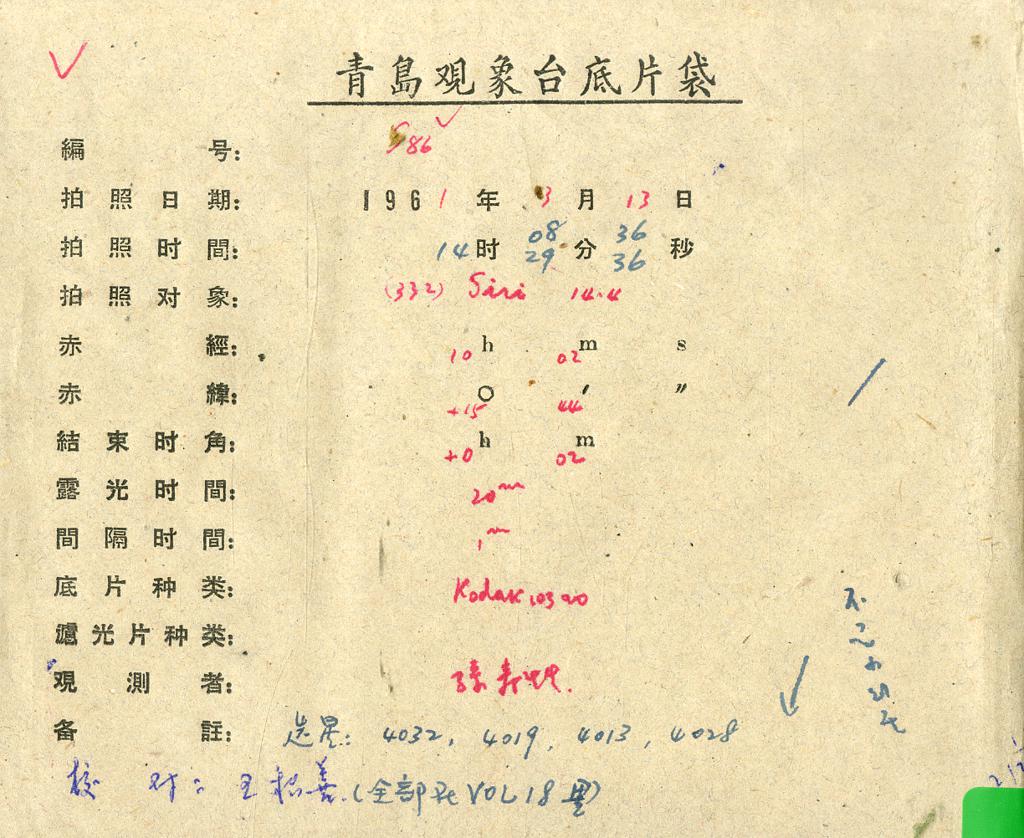 青島观象台底片袋
編号: 586
拍照日期: 1961年3月13日
拍照时間: 14时 08 29 分 36 36 秒
拍照对象: (332) Siri 14.4
赤經: 10h 02m s
赤緯: +15° 44′ ″
結束时角: +0h 02m
露光时間: 20m
間隔时間: 1m
底片种类: Kodak 103a0
濾光片种类:
观測者: 孫寿
备註: 选星: 4032, 4019, 4013, 4028
校对: 王 善 (全部在 VOL 18 里)